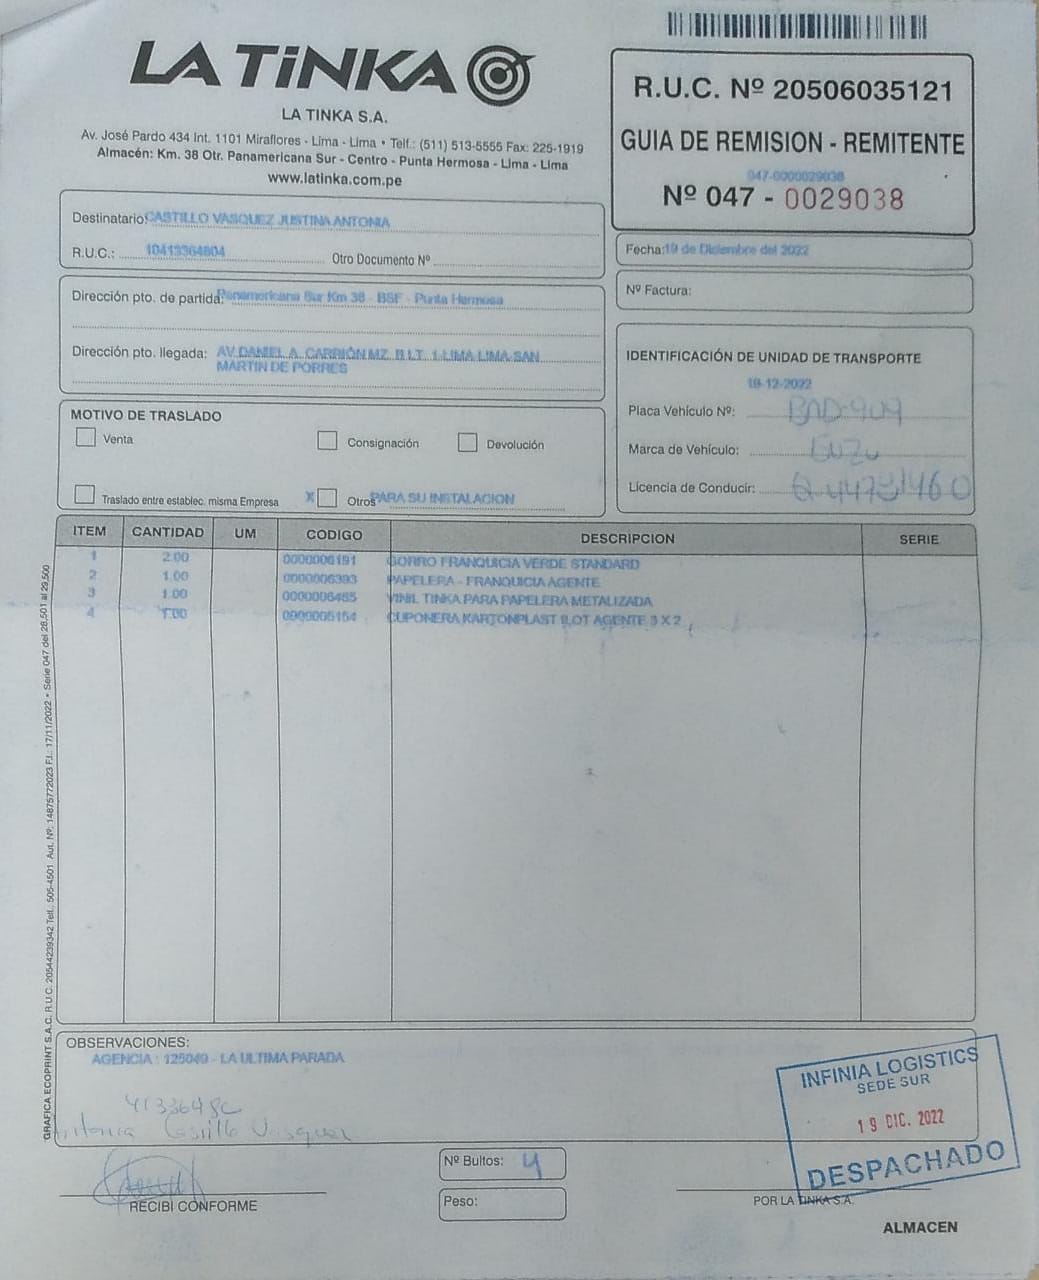 LA TiNKA
LA TINKA S.A.
Av. José Pardo 434 Int. 1101 Miraflores - Lima - Lima • Telf.: (511) 513-5555 Fax: 225-1919
Almacén: Km. 38 Otr. Panamericana Sur - Centro - Punta Hermosa - Lima - Lima
www.latinka.com.pe
R.U.C. Nº 20506035121
GUIA DE REMISION - REMITENTE
047-0000029038
Nº 047 - 0029038
Destinatario: CASTILLO VASQUEZ JUSTINA ANTONIA
R.U.C.: 10413364804 Otro Documento Nº
Fecha: 19 de Diciembre del 2022
Nº Factura:
Dirección pto. de partida: Panamericana Sur Km 38 - BSF - Punta Hermosa
Dirección pto. llegada: AV DANIEL A. CARRIÓN MZ. B LT. 1 LIMA LIMA SAN
MARTIN DE PORRES
IDENTIFICACIÓN DE UNIDAD DE TRANSPORTE
18-12-2022
Placa Vehículo Nº: BAD-909
Marca de Vehículo:
Licencia de Conducir:
MOTIVO DE TRASLADO
Venta Consignación Devolución
Traslado entre establec. misma Empresa X Otros PARA SU INSTALACION
ITEM CANTIDAD UM CODIGO DESCRIPCION SERIE
1 2.00 0000006191 GORRO FRANQUICIA VERDE STANDARD
2 1.00 0000006393 PAPELERA - FRANQUICIA AGENTE
3 1.00 0000006465 VINIL TINKA PARA PAPELERA METALIZADA
4 1.00 0000005154 CUPONERA KARTONPLAST SLOT AGENTE 3 X 2
GRAFICA ECOPRINT S.A.C. R.U.C. 20544239342 Telf.: 505-4501 Aut. Nº: 14875772023 F.I.: 17/11/2022 • Serie 047 del 28,501 al 29,500
OBSERVACIONES:
AGENCIA : 125049 - LA ULTIMA PARADA
Antonia Castillo Vasquez
RECIBI CONFORME
Nº Bultos: 4
Peso:
INFINIA LOGISTICS
SEDE SUR
19 DIC. 2022
DESPACHADO
POR LA TINKA S.A.
ALMACEN